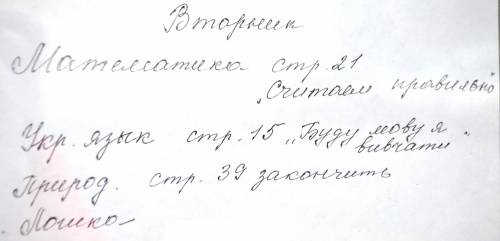 Вторник
Математика стр. 21
„Считаем правильно
Укр. язык стр. 15 „Буду мову я
вивчати".
Природ. стр. 39 закончить
Логика